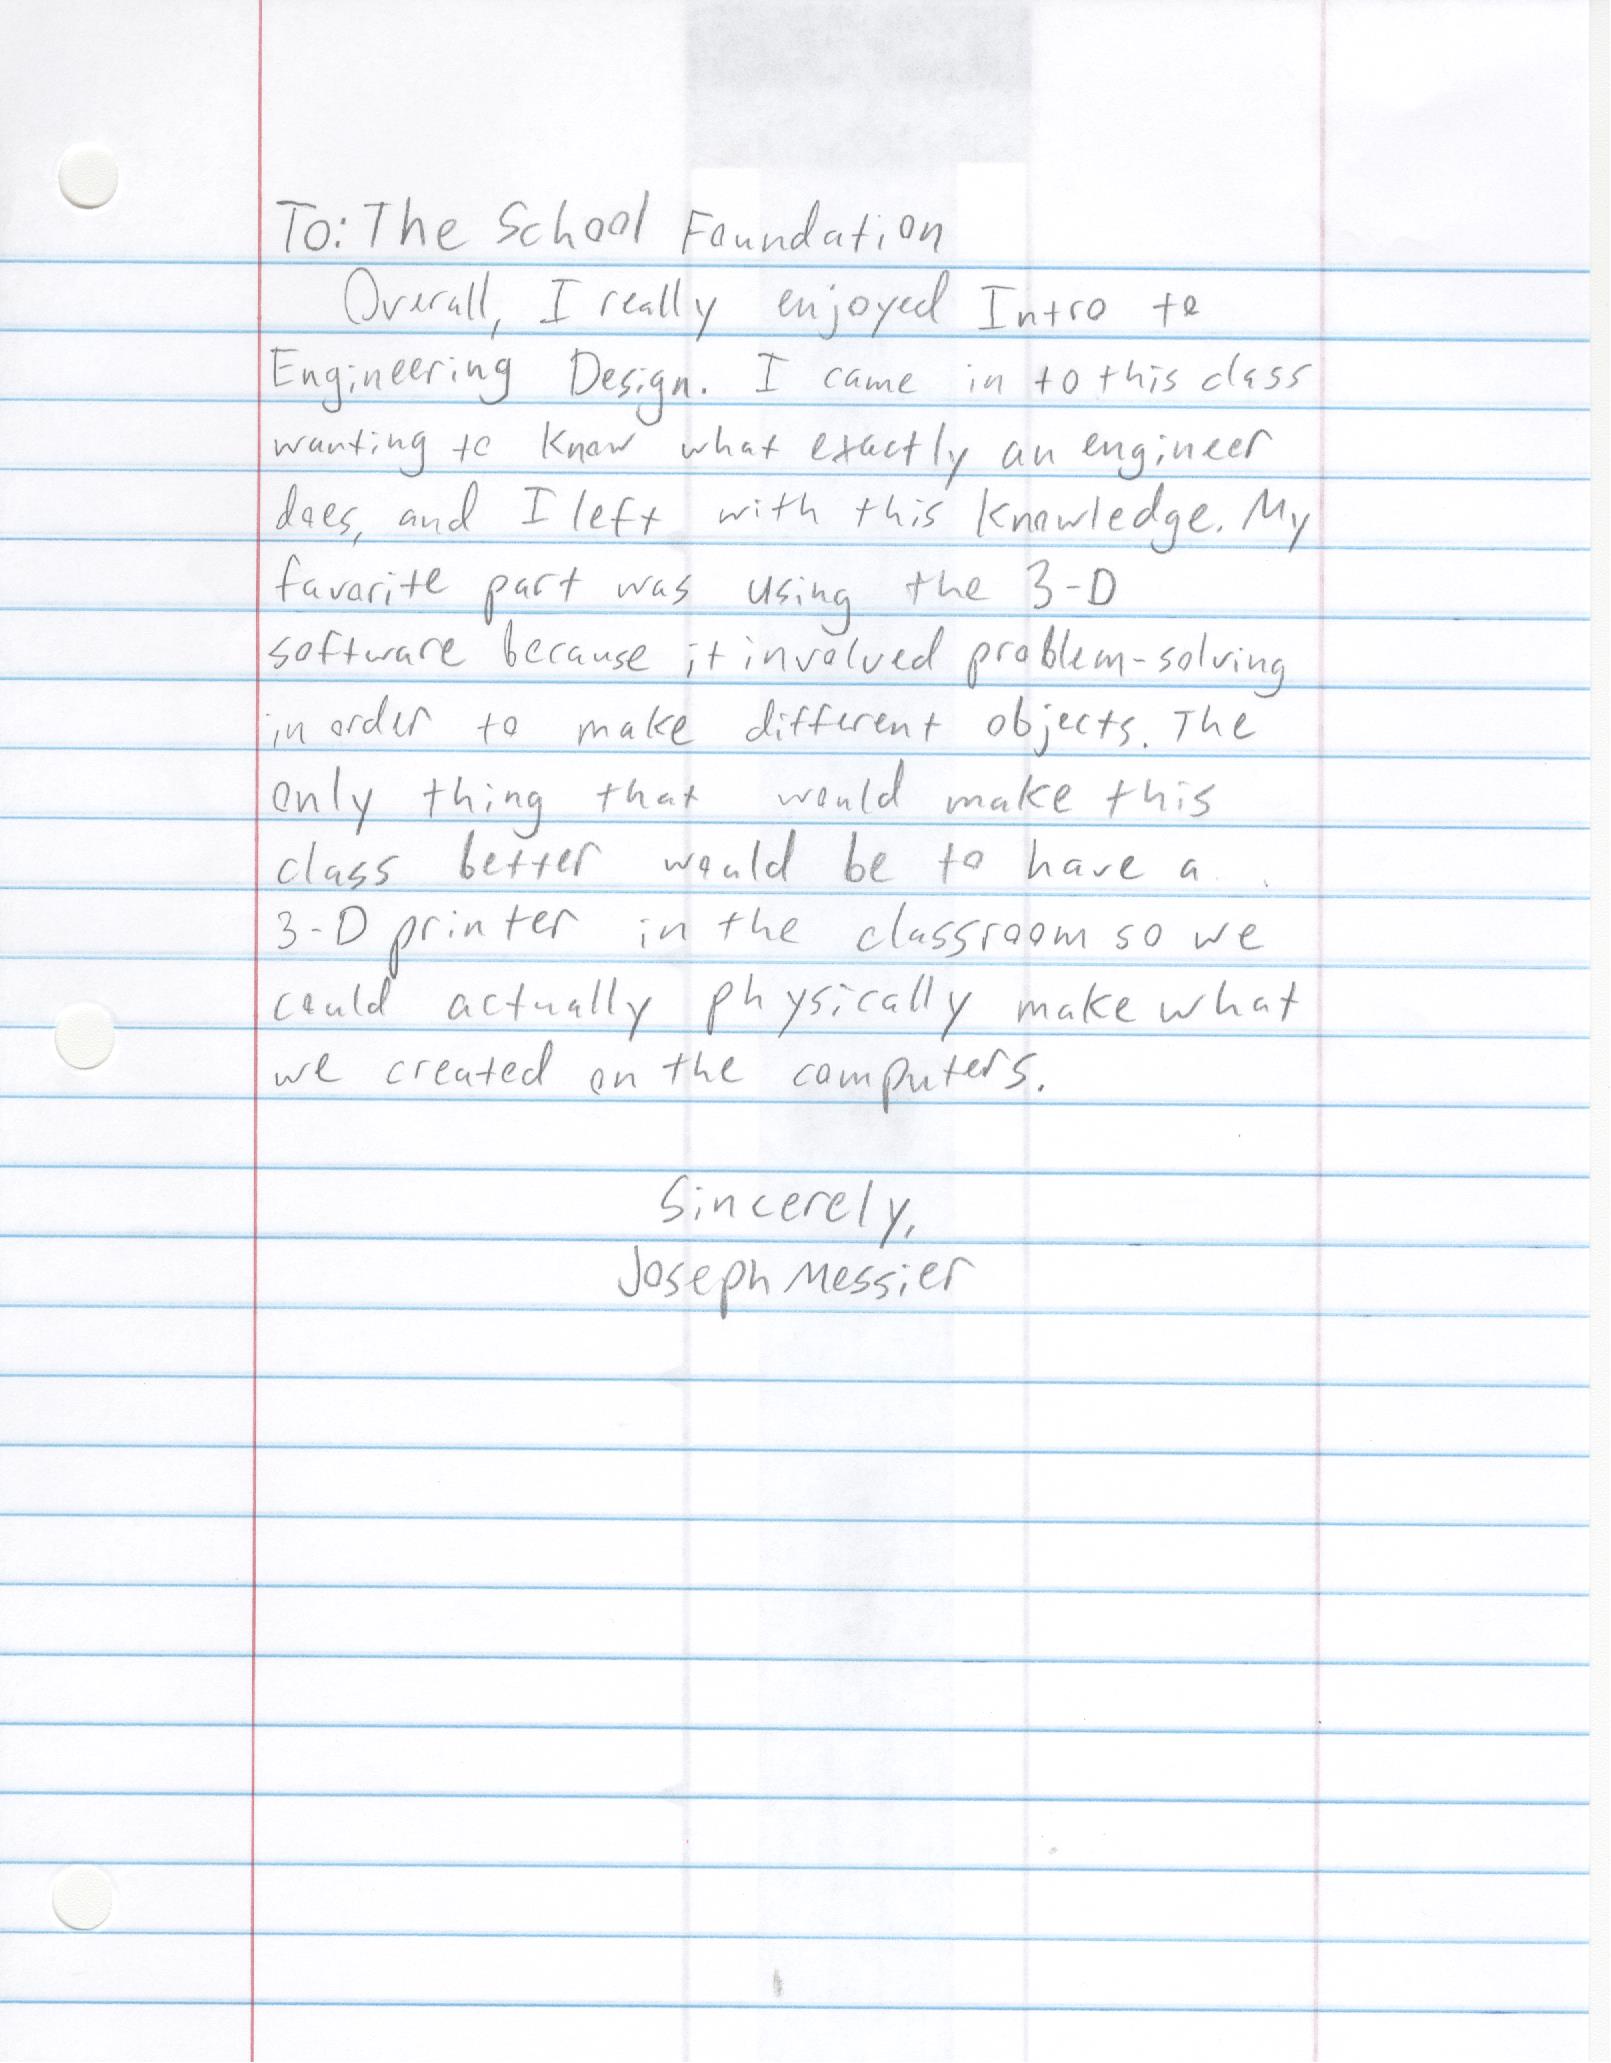 To: The School Foundation
Overall, I really enjoyed Intro to
Engineering Design. I came in to this class
wanting to know what exactly an engineer
does, and I left with this knowledge. My
favorite part was using the 3-D
software because it involved problem-solving
in order to make different objects. The
only thing that would make this
class better would be to have a
3-D printer in the classroom so we
could actually physically make what
we created on the computers.
Sincerely,
Joseph Messier